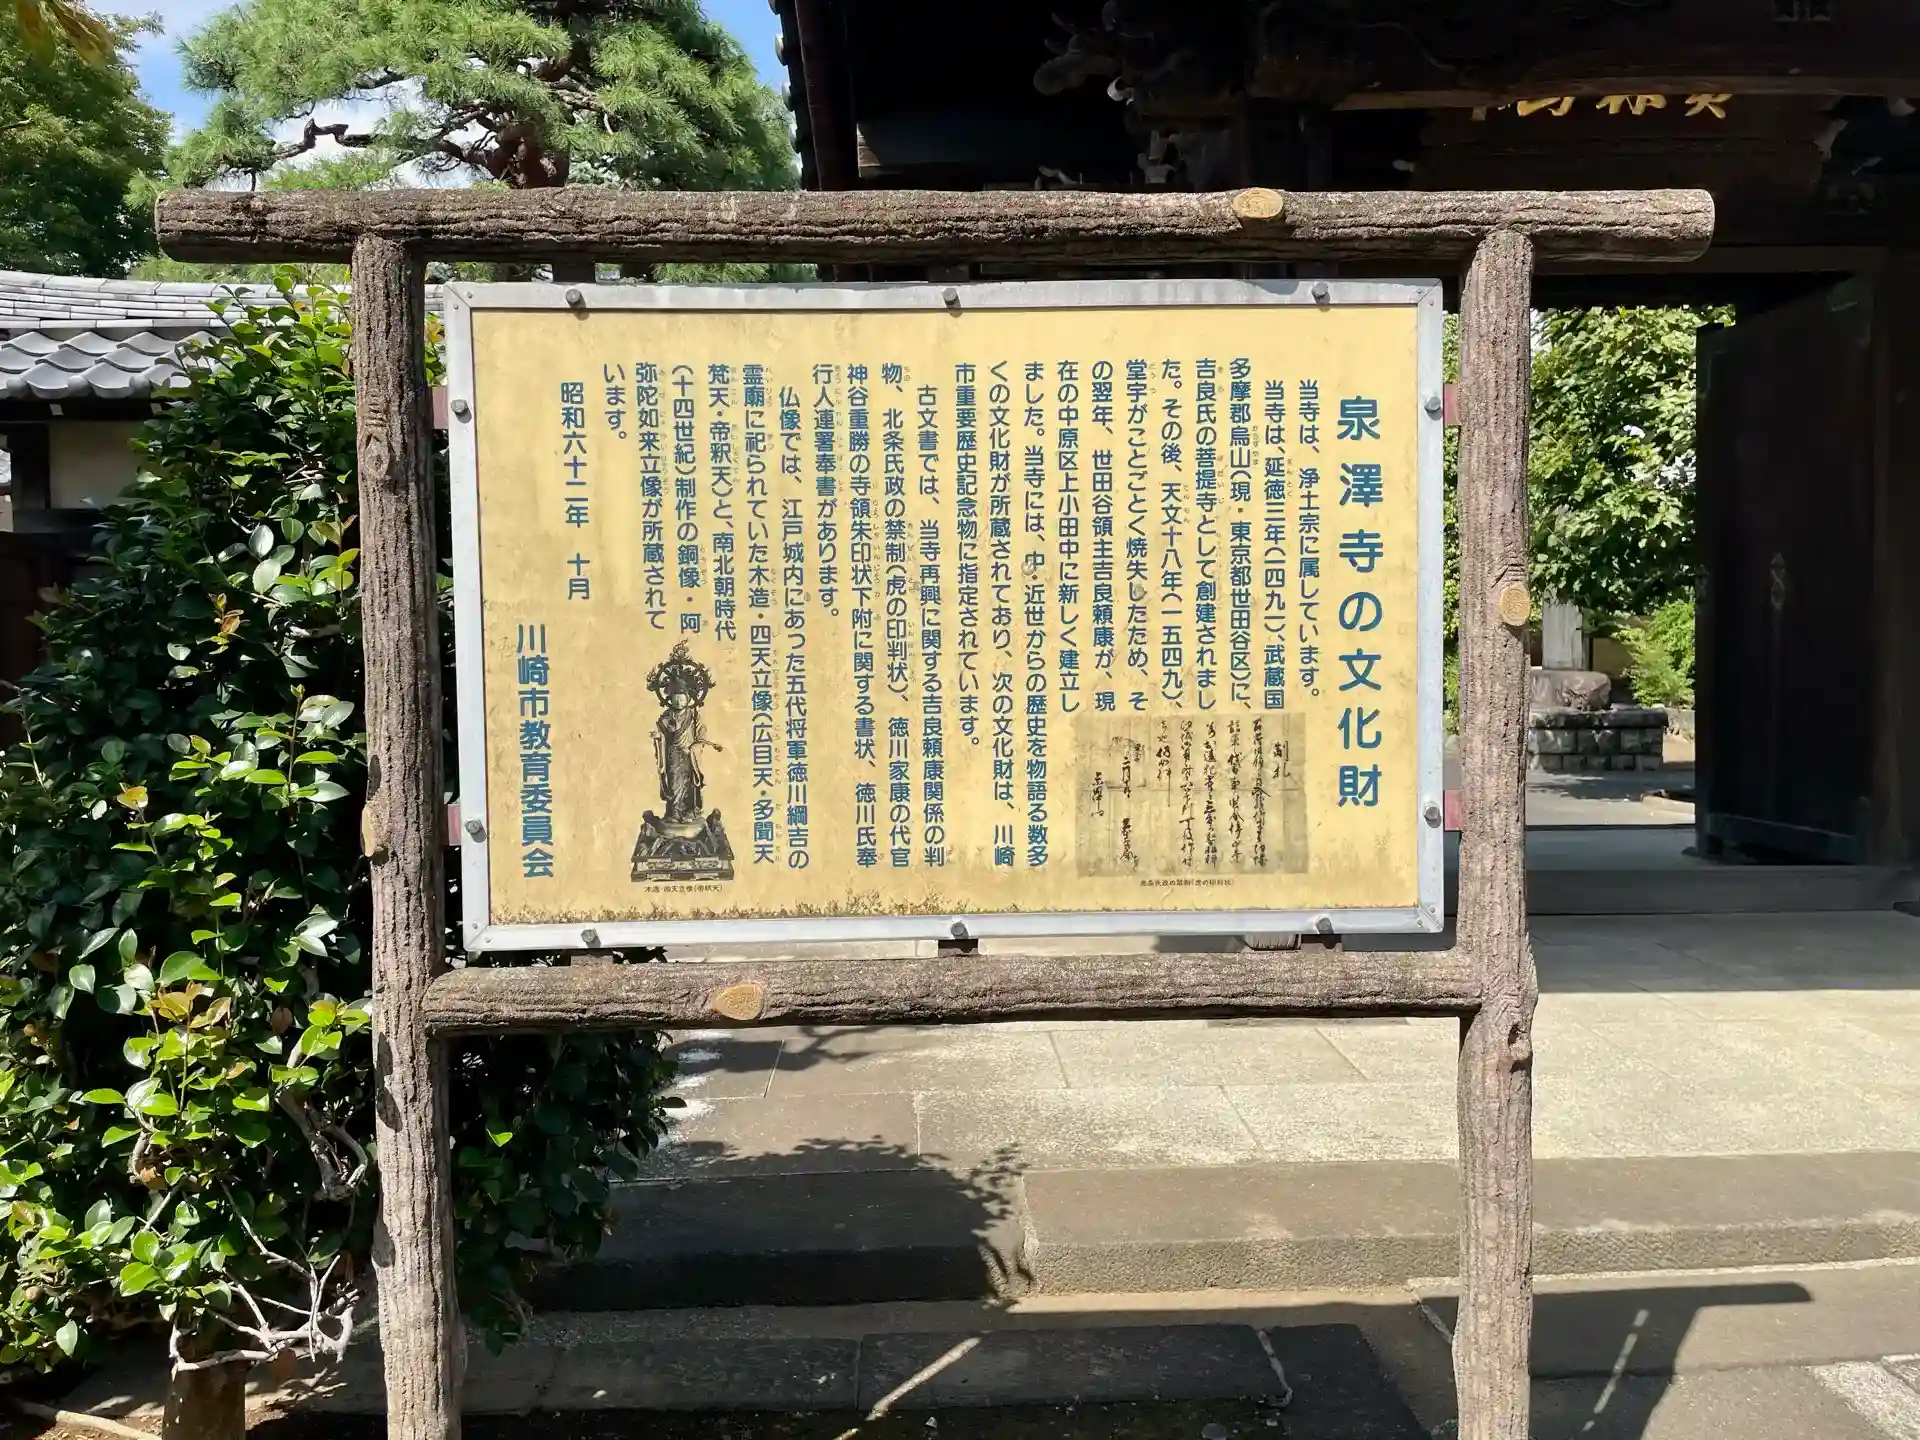 泉澤寺の文化財
当寺は、浄土宗に属しています。
当寺は、延徳三年(一四九一)、武蔵国
多摩郡烏山(現・東京都世田谷区)に、
吉良氏の菩提寺として創建されまし
た。その後、天文十八年(一五四九)、
堂宇がことごとく焼失したため、そ
の翌年、世田谷領主吉良頼康が、現
在の中原区上小田中に新しく建立し
ました。当寺には、中・近世からの歴史を物語る数多
くの文化財が所蔵されており、次の文化財は、川崎
市重要歴史記念物に指定されています。
古文書では、当寺再興に関する吉良頼康関係の判
物、北条氏政の禁制(虎の印判状)、徳川家康の代官
神谷重勝の寺領朱印状下附に関する書状、徳川氏奉
行人連署奉書があります。
仏像では、江戸城内にあった五代将軍徳川綱吉の
霊廟に祀られていた木造・四天立像(広目天・多聞天
梵天・帝釈天)と、南北朝時代
(十四世紀)制作の銅像・阿
弥陀如来立像が所蔵されて
います。
昭和六十二年 十月
川崎市教育委員会
北条氏政の禁制(虎の印判状)
木造・四天立像(帝釈天)